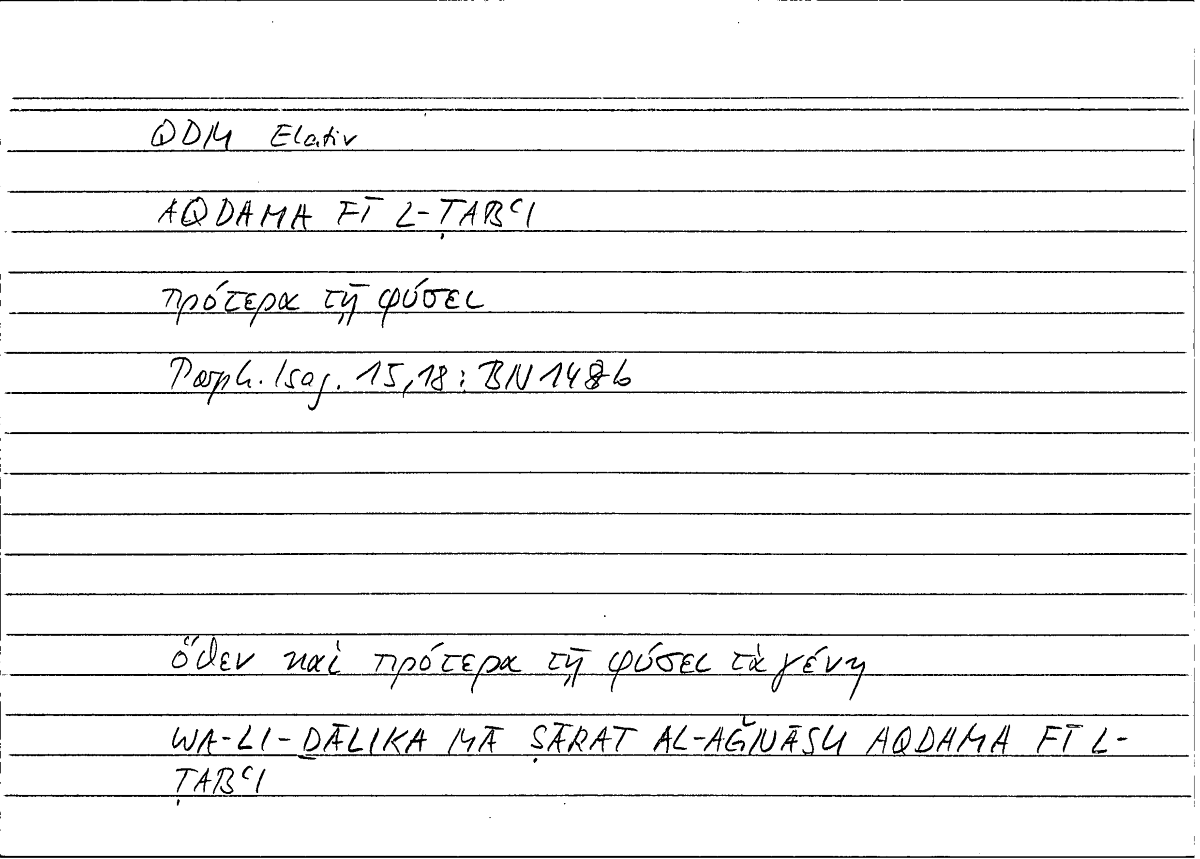 QDM Elativ
AQDAMA FĪ L-ṬABʿI
πρότερα τῇ φύσει
Porph. Isag. 15,18: BN 148b
ὅθεν καὶ πρότερα τῇ φύσει τὰ γένη
WA-LI-ḎĀLIKA MĀ ṢĀRAT AL-AǦNĀSU AQDAMA FĪ L-
ṬABʿI